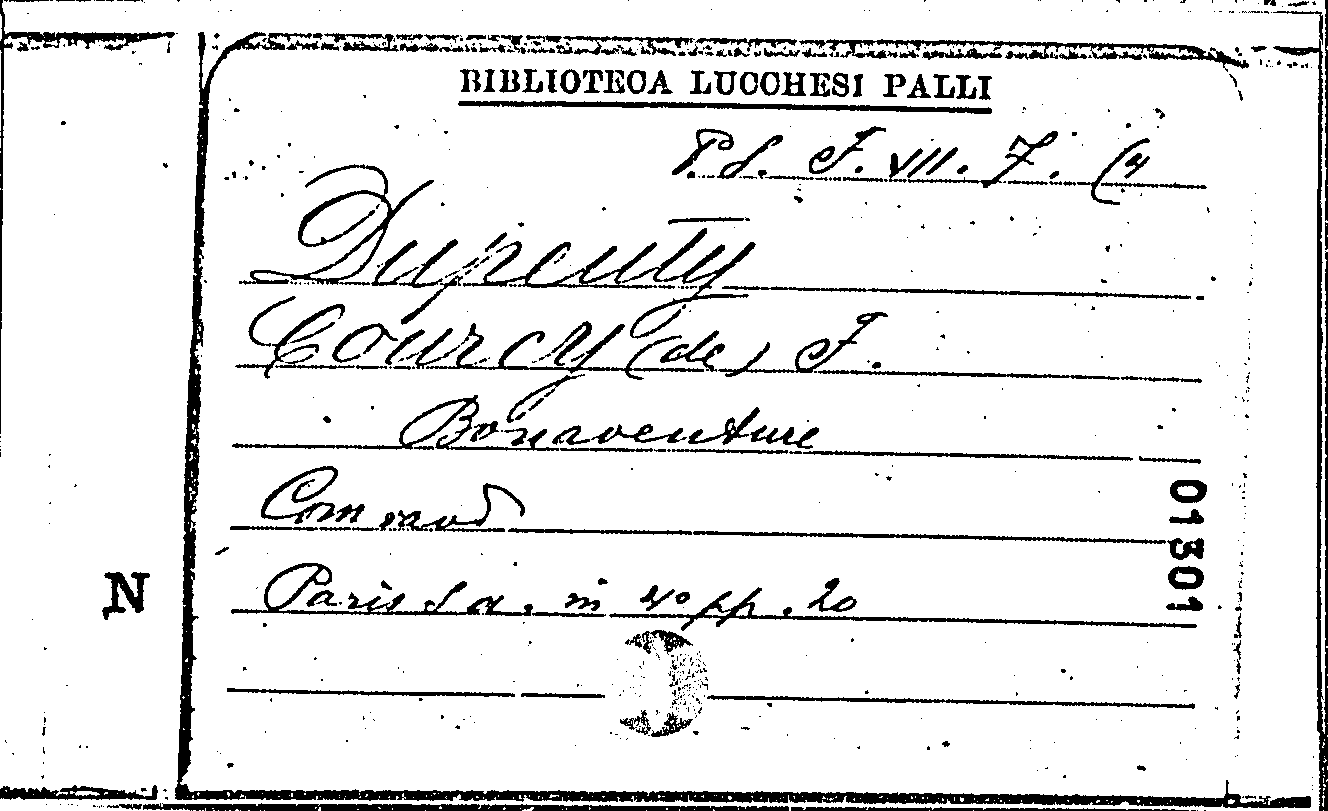 BIBLIOTECA LUCCHESI PALLI
P.S. F. VII. 7. (4
Dupeuty
Courcy (de) F.
Bonaventure
Com vaud
N
Paris S a. in 4° pp. 20
01301